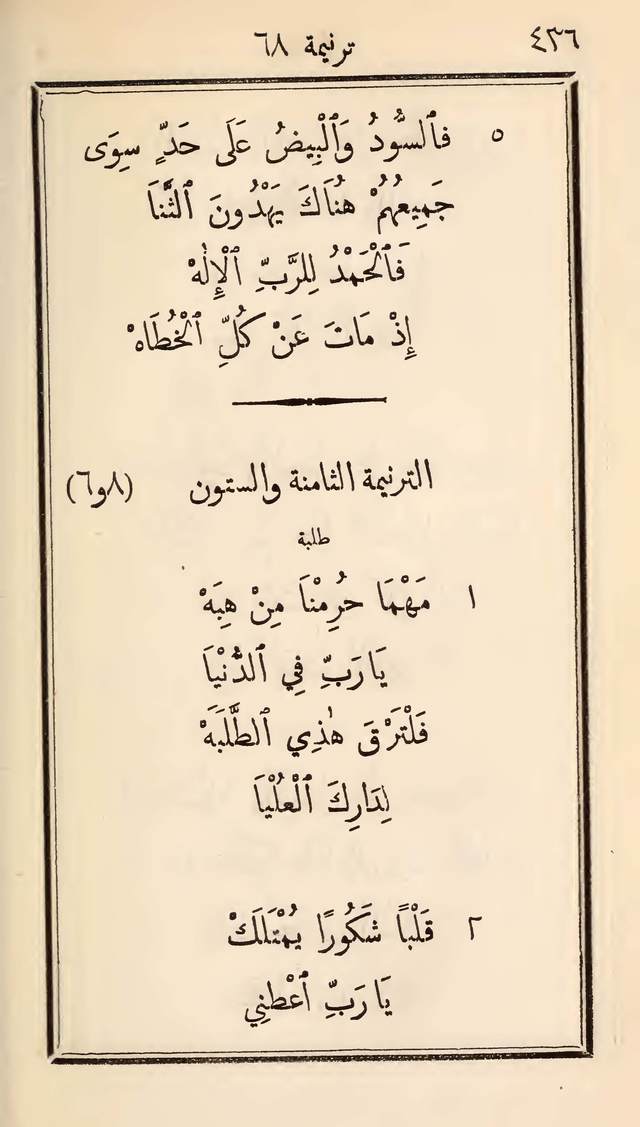 ٤٣٦ ترنيمة ٦٨
٥ فَٱلسُّودُ وَٱلْبِيضُ عَلَى حَدٍّ سِوَى
جَمِيعُهُمْ هُنَاكَ يَهْدُونَ ٱلثَّنَا
فَٱلْحَمْدُ لِلرَّبِّ ٱلْإِلٰهْ
إِذْ مَاتَ عَنْ كُلِّ ٱلْخُطَاهْ
الترنيمة الثامنة والستون (٨و٦)
طلبة
١ مَهْمَا حُرِمْنَا مِنْ هِبَهْ
يَا رَبِّ فِي ٱلدُّنْيَا
فَلْتَرْقَ هٰذِي ٱلطَّلَبَهْ
لِدَارِكَ ٱلْعُلْيَا
٢ قَلْبًا شَكُورًا يُمْتَلَكْ
يَا رَبِّ أَعْطِنِي